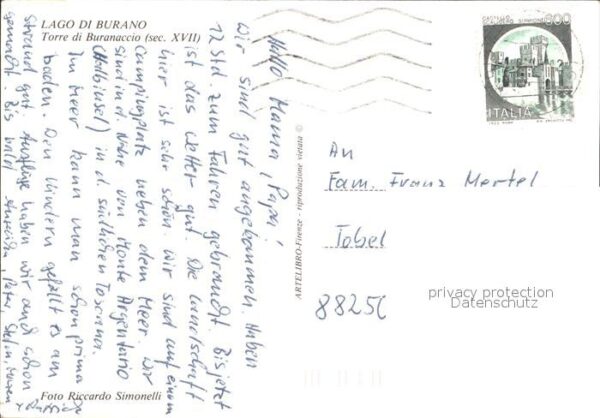 LAGO DI BURANO
Torre di Buranaccio (sec. XVII)
Hallo Mama, Papa!
Wir sind gut angekommen. Haben
12 Std. zum Fahren gebraucht. Bis jetzt
ist das Wetter gut. Die Landschaft
hier ist sehr schön. Wir sind auf einem
Campingplatz neben dem Meer. Wir
sind in d. Nähe von Monte Argentario
(Halbinsel) in d. südlichen Toscana.
Im Meer kann man schon prima
baden. Den Kindern gefällt es am
Strand gut. Ausflüge haben wir auch schon
gemacht. Bis bald
Peter, Stefan,
Foto Riccardo Simonelli
ARTELIBRO-Firenze - riproduzione vietata ©
800
ITALIA
An
Fam. Franz Mertel
Tobel
8825
privacy protection
Datenschutz